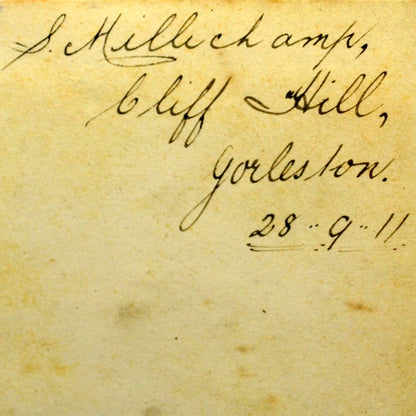 S. Millichamp,
Cliff Hill,
Gorleston.
28..9..11